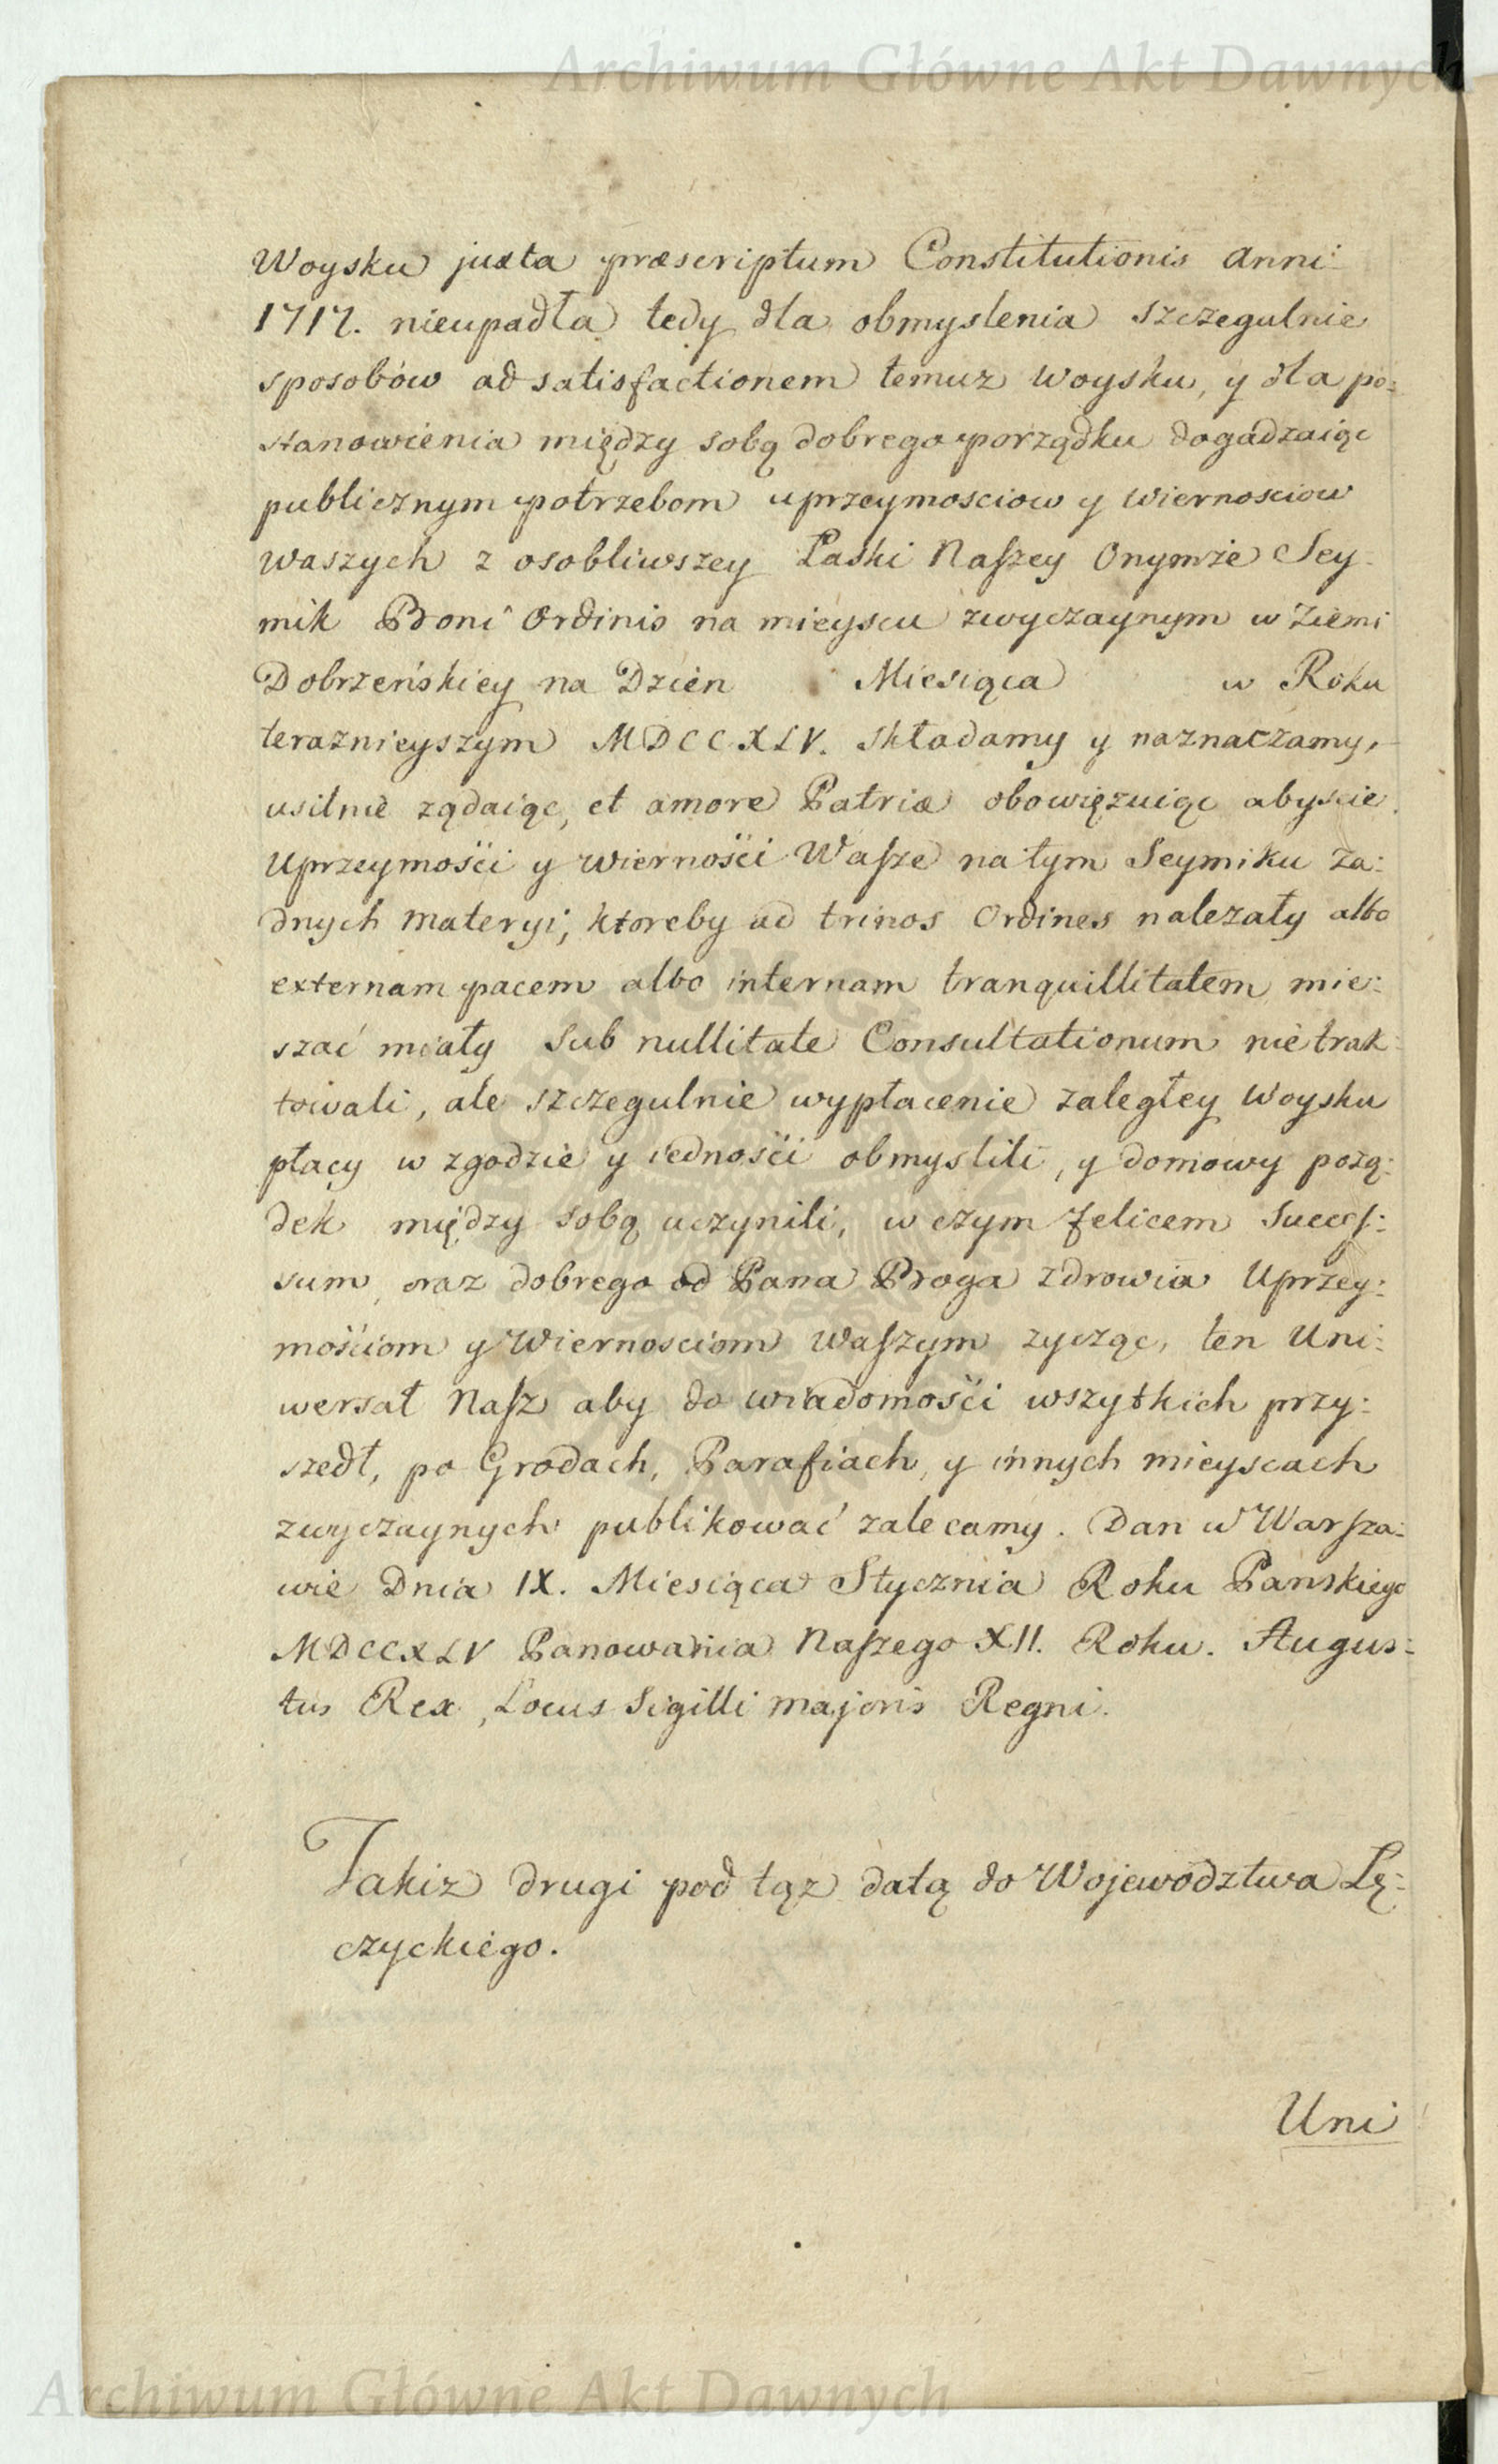 Archiwum Główne Akt Dawnych
Woysku juxta præscriptum Constitutionis Anni
1717. nieupadła tedy dla obmyslenia szczegulnie
sposobów ad satisfactionem temuz Woysku, y dla po:
stanowienia między sobą dobrego porządku dogadzaiąc
publicznym potrzebom uprzeymosciow y wiernosciow
waszych z osobliwszey Łaski Naſzey Onymże Sey:
mik Boni Ordinis na mieyscu zwyczaynym w Ziemi
Dobrzeńskiey na Dzień Miesiąca w Roku
teraznieyszym MDCCXLV. składamy y naznaczamy,
usilnie ządaiąc, et amore Patriæ obowięzuiąc abyscie
Uprzeymości y wierności Waſze na tym Seymiku Za:
dnych materyi, ktoreby ad trinos Ordines nalezały albo
externam pacem albo internam tranquillitatem mie:
szać miały Sub nullitate Consultationum nie trak:
towali, ale szczegulnie wypłacenie zaległey Woysku
płacy w zgodzie y iedności obmyslili, y domowy pozą:
dek między sobą uczynili, w czym felicem Succeſ:
sum, oraz dobrego od Pana Boga zdrowia Uprzey:
mościom y Wiernosciom Waſzym zycząc, ten Uni:
wersał Naſz aby do wiadomości wszytkich przy:
szedł, po Grodach, Parafiach, y innych mieyscach
zwyczaynych publikować zalecamy. Dan w Warſza:
wie Dnia IX. Miesiąca Stycznia Roku Panskiego
MDCCXLV Panowania Naſzego XII. Roku. Augus:
tus Rex, Locus Sigilli majoris Regni.
Takiz drugi pod tąz datą do Województwa Łę:
czyckiego.
Uni
Archiwum Główne Akt Dawnych